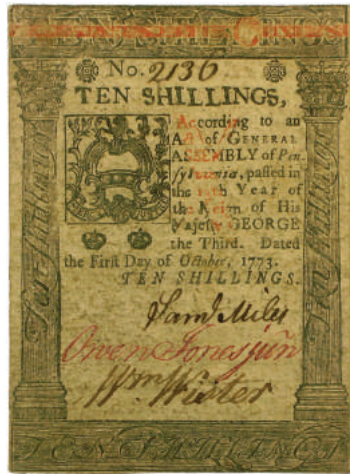 TEN SHILLINGS
No. 2136
TEN SHILLINGS,
According to an
Act of GENERAL
ASSEMBLY of Pen-
sylvania, passed in
the 13th Year of
the Reign of His
Majesty GEORGE
the Third. Dated
the First Day of October, 1773.
TEN SHILLINGS.
Ten Shillings
Ten Shillings
Saml Miles
Owen Jones junr
Wm Wister
TEN SHILLINGS